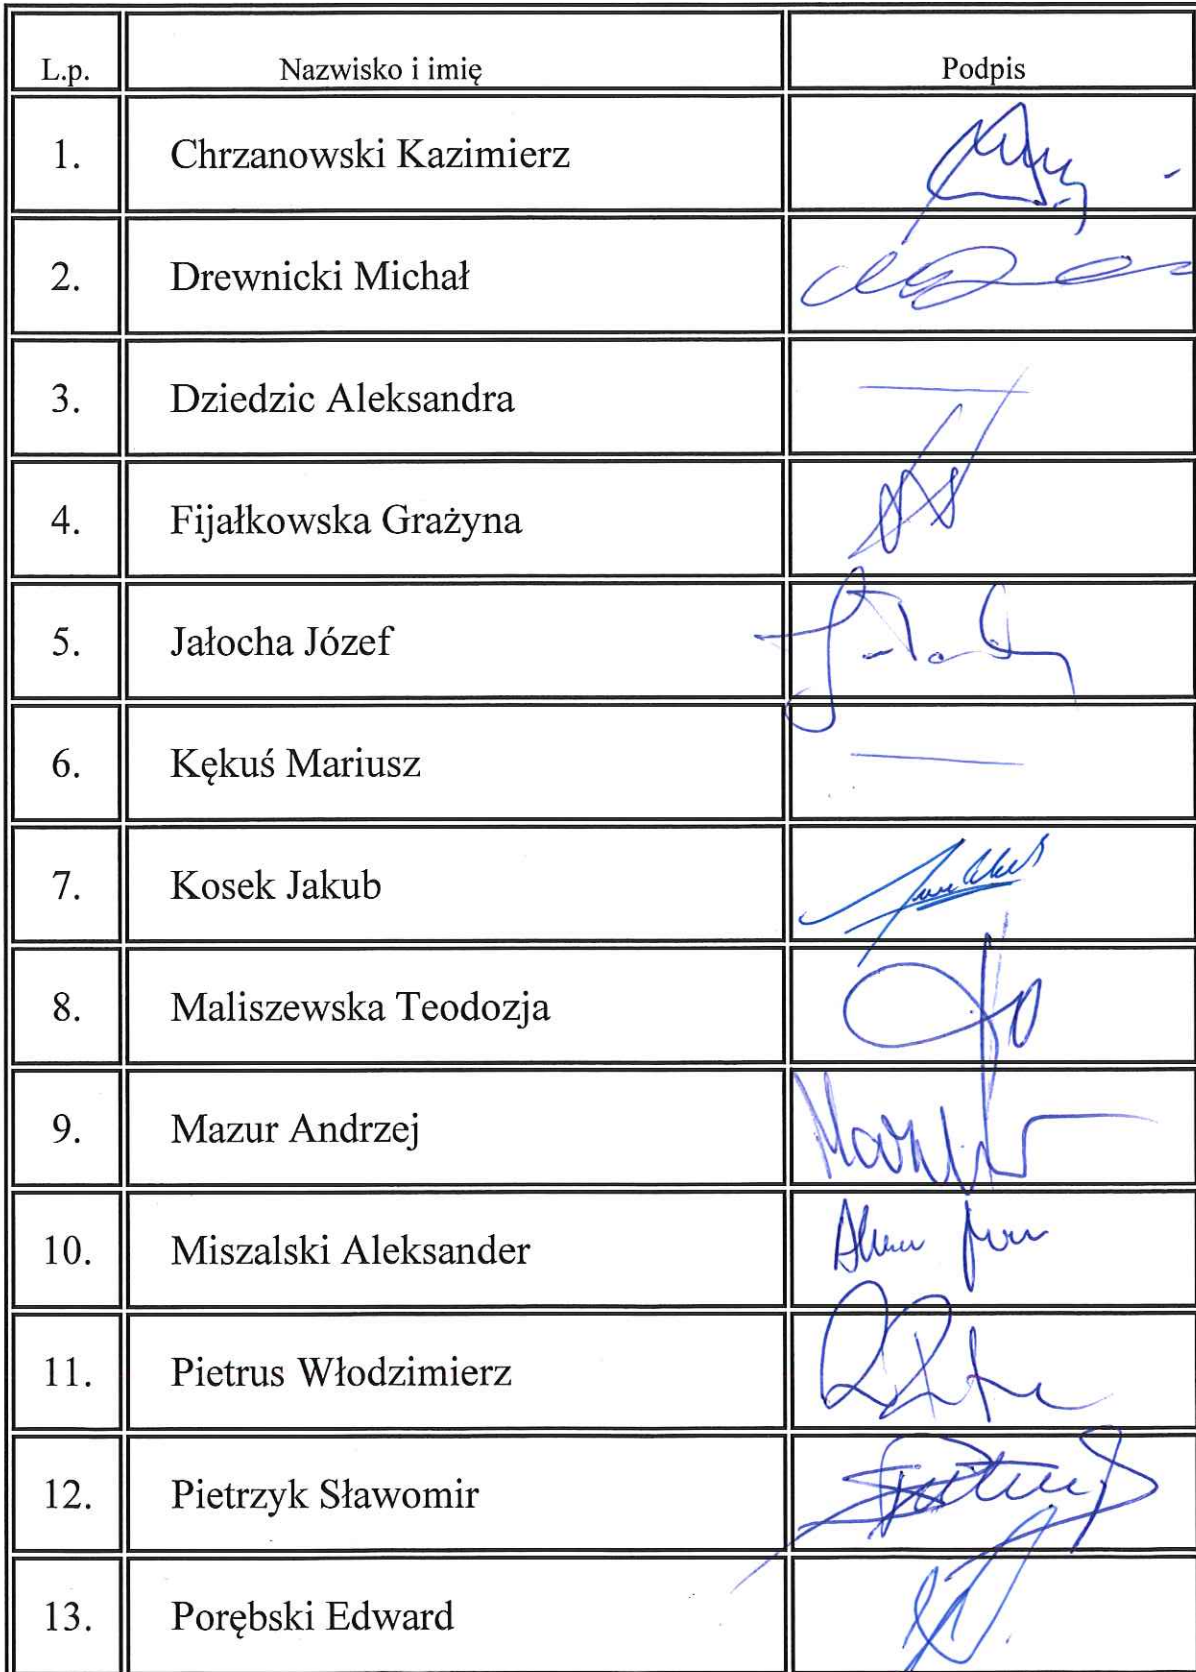 L.p. Nazwisko i imię Podpis
1. Chrzanowski Kazimierz
2. Drewnicki Michał
3. Dziedzic Aleksandra
4. Fijałkowska Grażyna
5. Jałocha Józef
6. Kękuś Mariusz
7. Kosek Jakub
8. Maliszewska Teodozja
9. Mazur Andrzej
10. Miszalski Aleksander
11. Pietrus Włodzimierz
12. Pietrzyk Sławomir
13. Porębski Edward